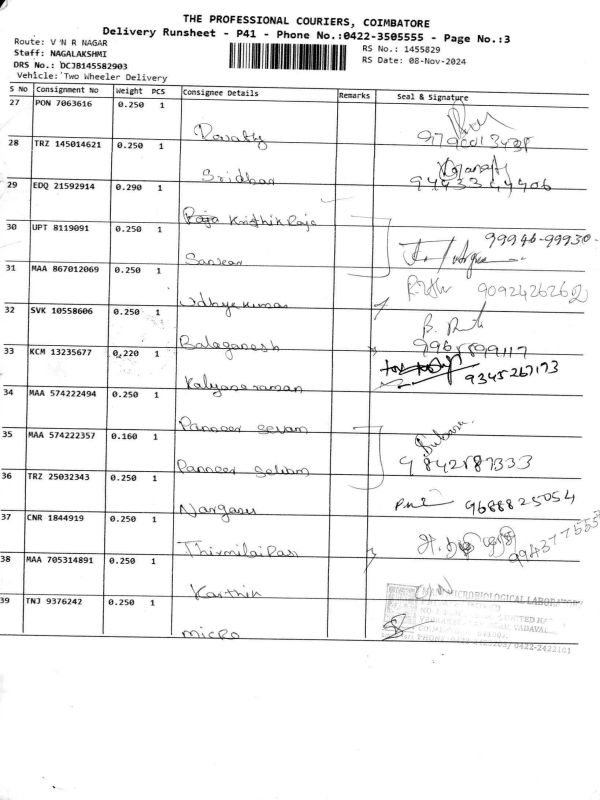 THE PROFESSIONAL COURIERS, COIMBATORE
Delivery Runsheet - P41 - Phone No.:0422-3505555 - Page No.:3
Route: V N R NAGAR
Staff: NAGALAKSHMI
DRS No.: DCJB145582903
Vehicle: Two Wheeler Delivery
RS No.: 1455829
RS Date: 08-Nov-2024
S No Consignment No Weight PCS Consignee Details Remarks Seal & Signature
27 PON 7063616 0.250 1
Revathy
28 TRZ 145014621 0.250 1
Sridhar
29 EDQ 21592914 0.290 1
Raja Krithik Raja
30 UPT 8119091 0.250 1
99946-99930
Sankar
31 MAA 867012069 0.250 1
9092426262
Udhyakumar
32 SVK 10558606 0.250 1
Balaganesh
33 KCM 13235677 0.220 1
9345267173
Kalyanaraman
34 MAA 574222494 0.250 1
Panneer Selvam
35 MAA 574222357 0.160 1
9842887333
Panneer Selvam
36 TRZ 25032343 0.250 1
9688825054
37 CNR 1844919 0.250 1
38 MAA 705314891 0.250 1
Karthik
39 TNJ 9376242 0.250 1
MICROBIOLOGICAL LABORATORY
MICRO